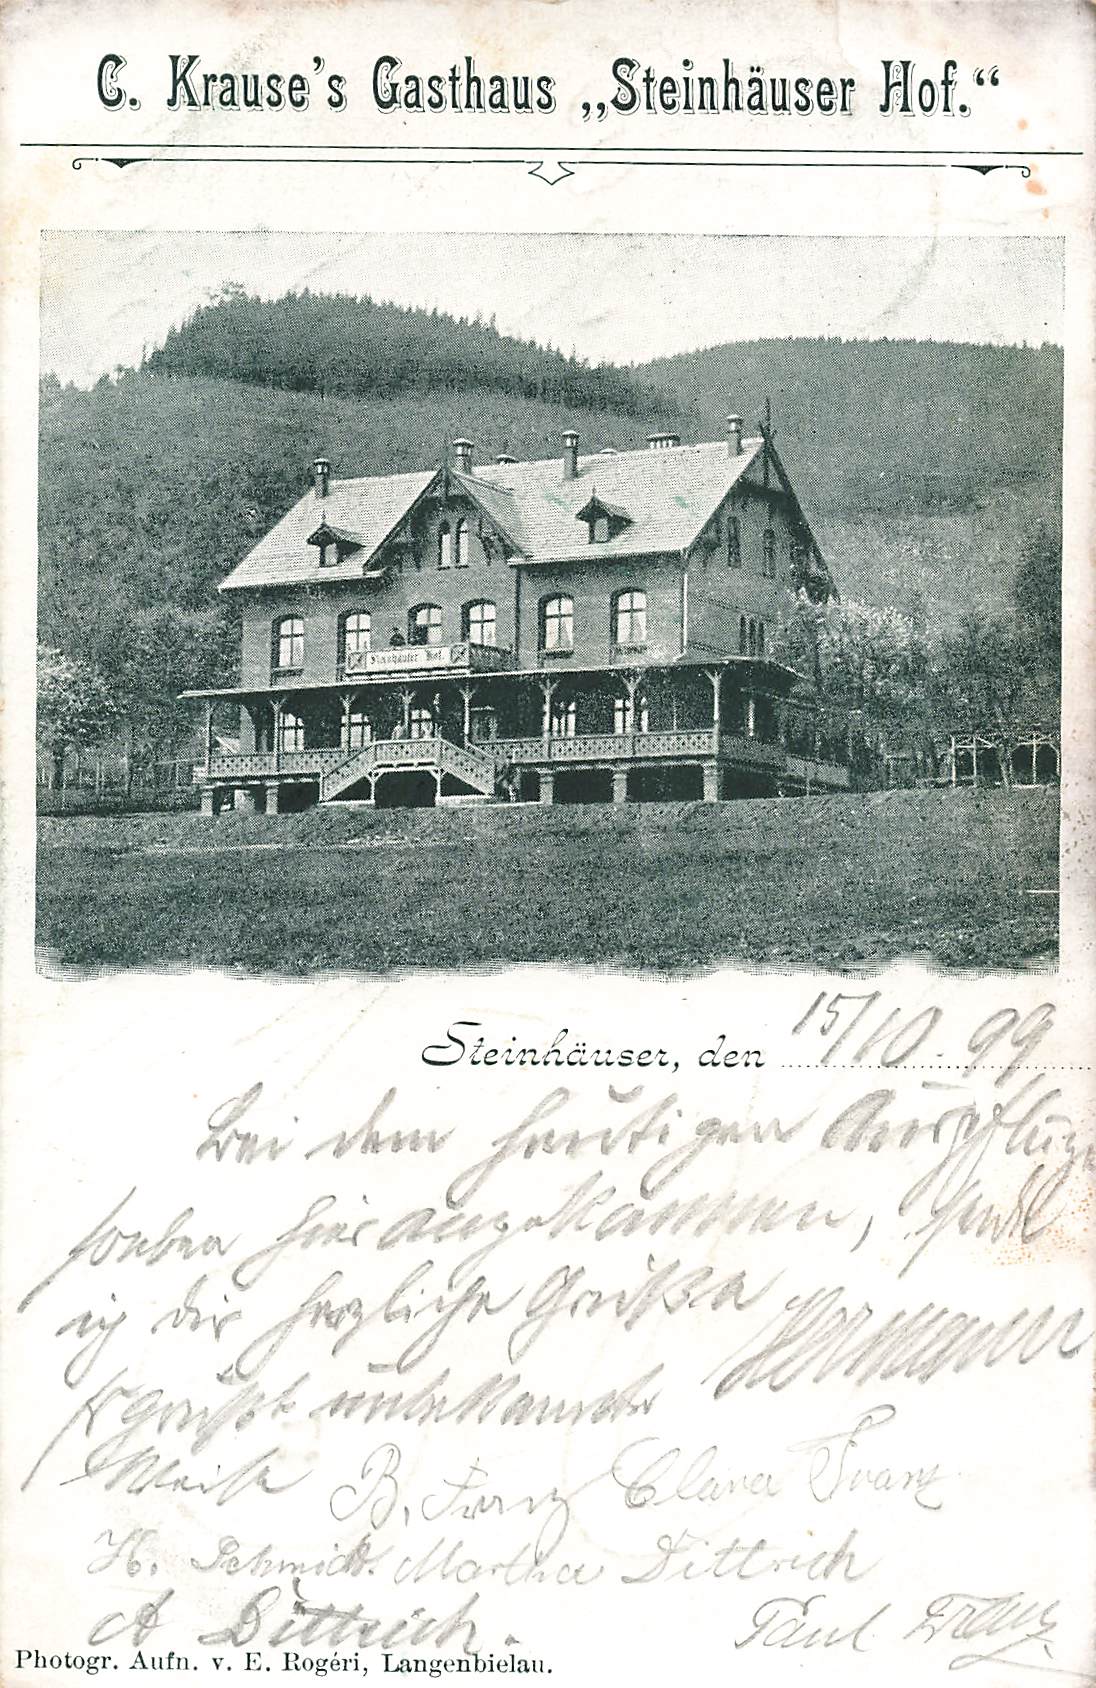 C. Krause's Gasthaus „Steinhäuser Hof.“
Steinhäuser Hof.
Steinhäuser, den 15/10. 99
Bei dem heutigen Ausfluge
soeben hier angekommen, sende
ich dir herzliche Grüße Hermann
Es grüßt unbekannter
Weise B. Franz Clara Franz
H. Schmidt. Martha Dittrich
A Dittrich. Paul Franz
Photogr. Aufn. v. E. Rogéri, Langenbielau.